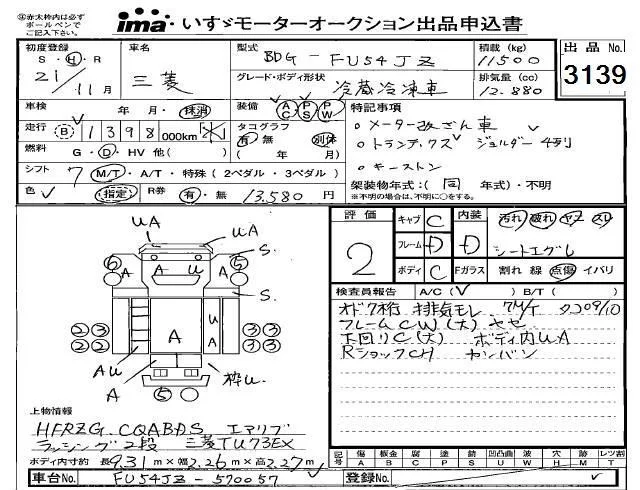 ㊟赤太枠内は必ず
ボールペンで
ご記入下さい。
ima いすゞモーターオークション出品申込書
初度登録 S・H・R 21年 11月
車名 三菱
型式 BDG-FU54JZ
積載(kg) 11500
出品No. 3139
グレード・ボディ形状 冷蔵冷凍車
排気量(cc) 12.880
車検 年・月・抹消
装備 AC PS PW
特記事項
走行 B 1398 000km
タコグラフ 有 無 別体 ( 年 月)
・メーター改ざん車
・トランテックス ジョルダー4列
・キーストン
燃料 G・D・HV 他( )
シフト 7 M/T・A/T・特殊(2ペダル・3ペダル)
架装物年式:(同 年式)・不明
※不明の場合は、不明に○をする。
色 指定 R券 有・無 13,580円
評価 2
キャブ C 内装 D 汚れ 破れ ヤケ スレ
フレーム D シートエグレ
ボディ C Fガラス 割れ 線 点傷 イバリ
検査員報告 A/C( ) B/T( )
オドク桁 排気モレ 7M/T タコ09/10
フレームCW(大) ヤセ
下回りC(大) ボディ内UA
RショックCH カンバン
UA UA S. S.
A A U
6 5
A A
U A A
2 2 3 3
2 2 3 3
AU 枠U.
A 5
上物情報
HFRZG CQABDS エアリブ
ラッシング2段 三菱TU73EX
ボディ内寸約 長9.31m×幅2.26m×高2.27m
記号 傷A 板金B 腐C 塗P 錆S 凹凸曲U 波W 穴H 跡M レツ割T
車台No. FU54JZ-570057
登録No.